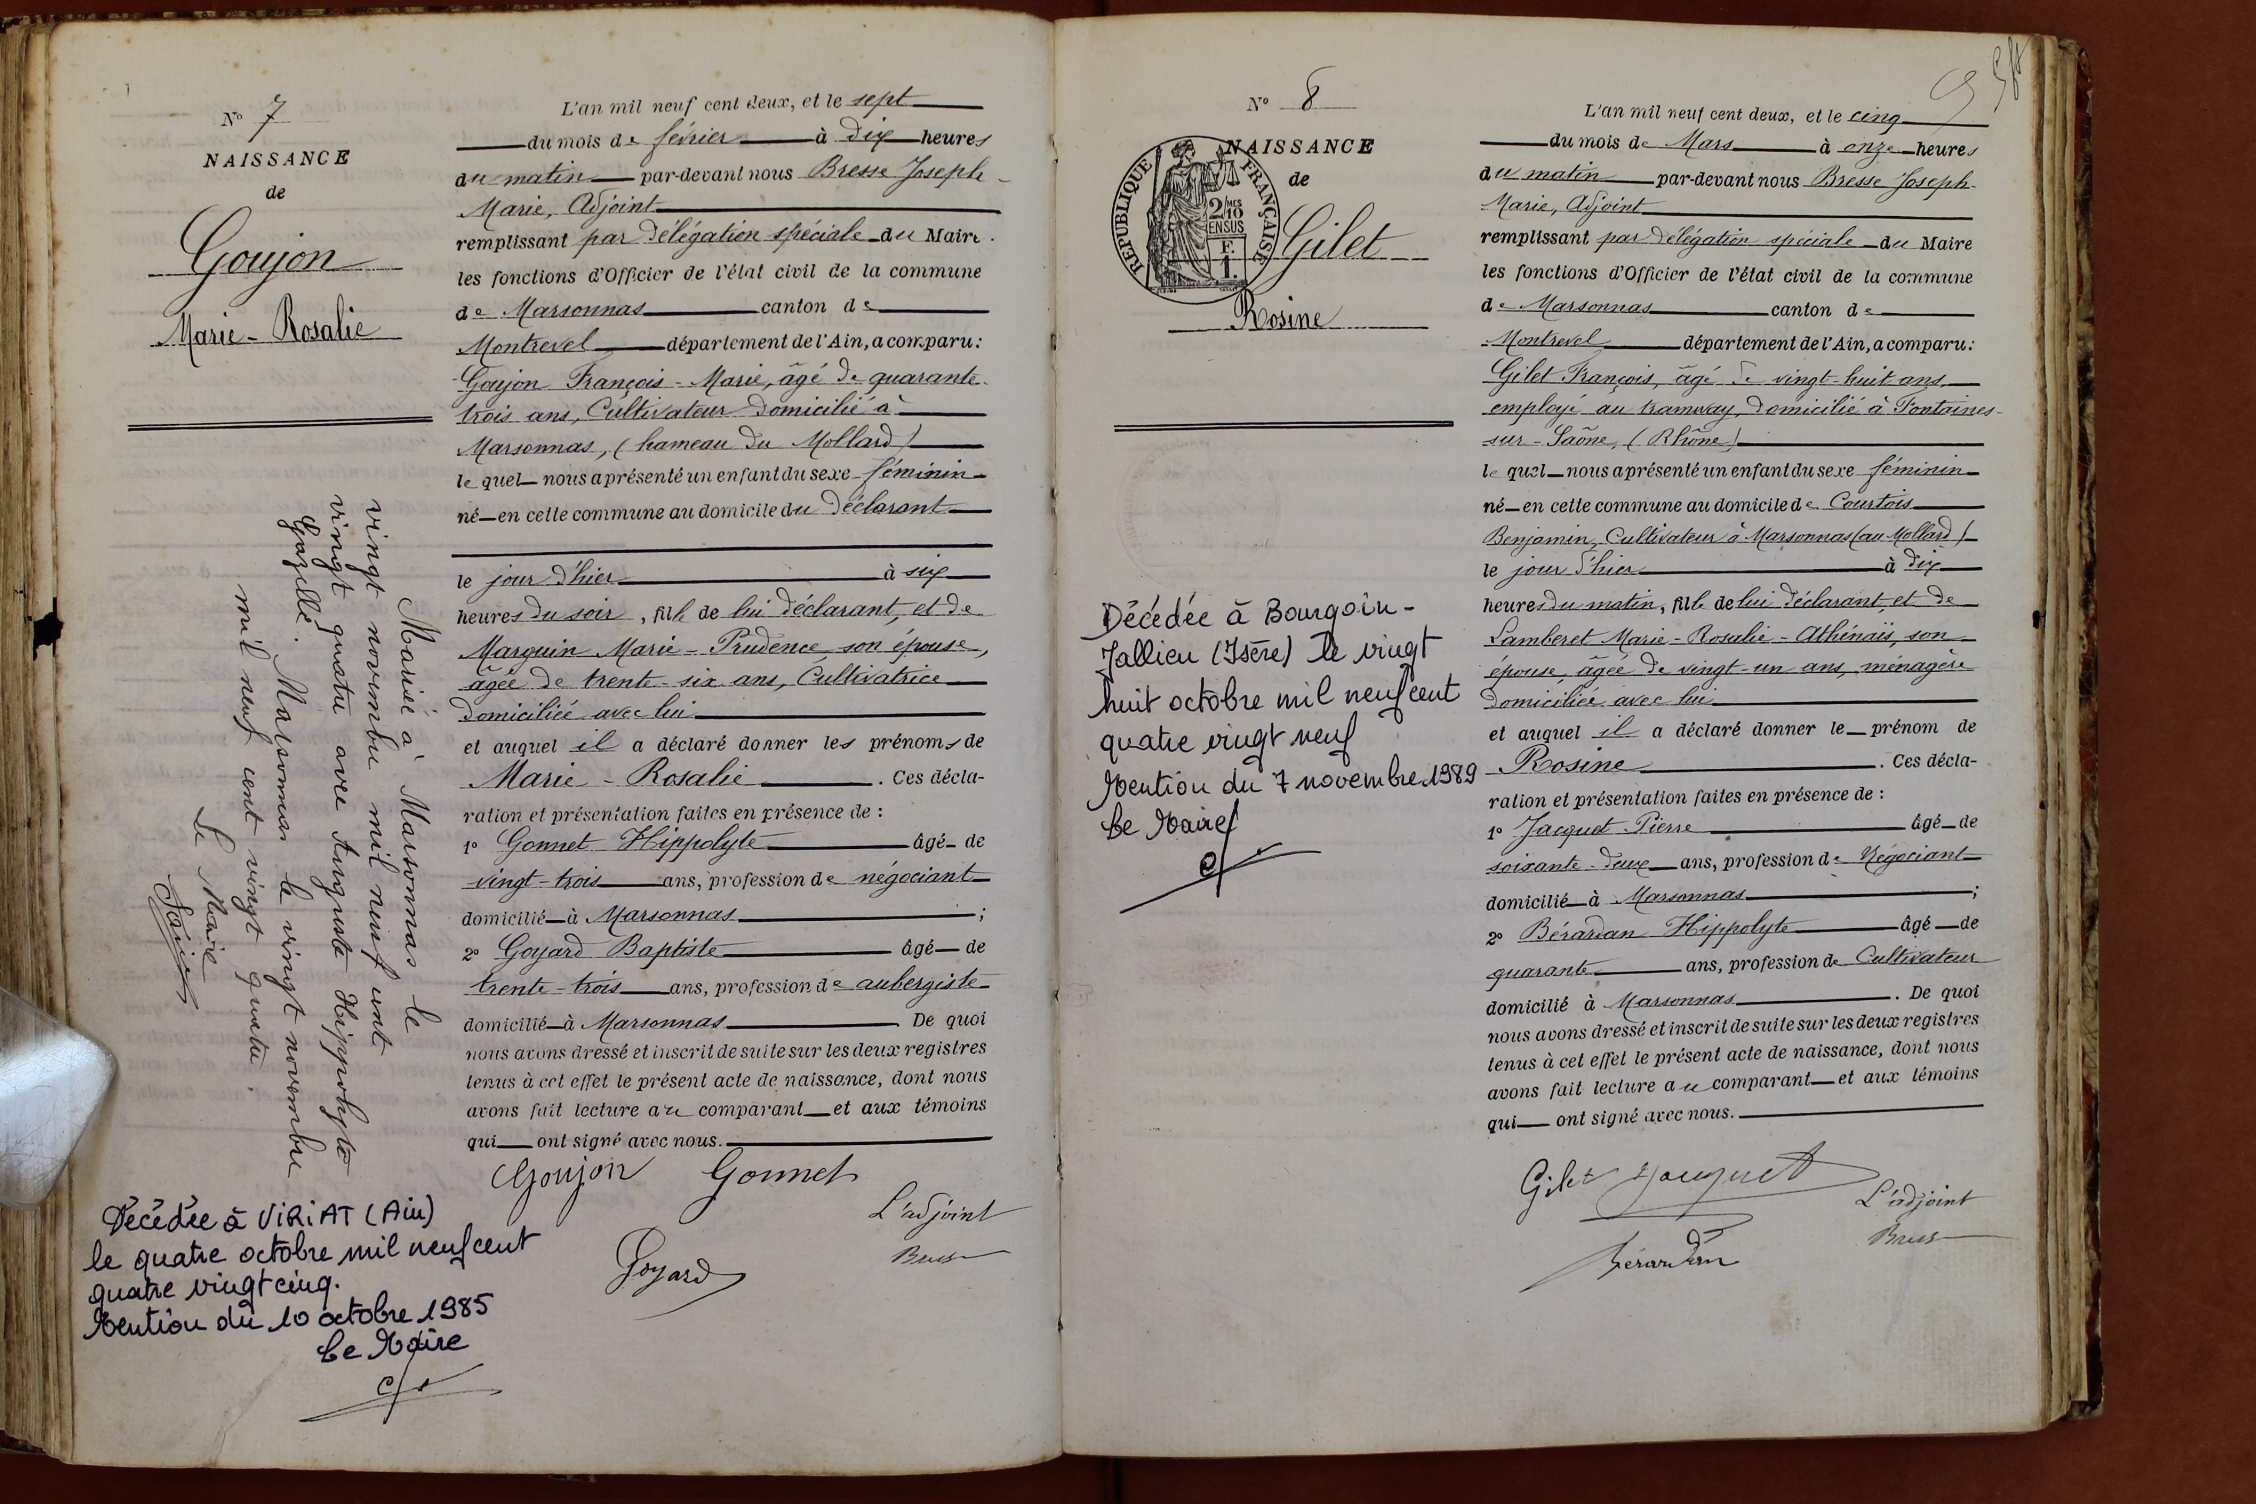 N° 7
NAISSANCE
de
Goujon
Marie - Rosalie
L'an mil neuf cent deux, et le sept
du mois de février à dix heures
du matin par-devant nous Bresse Joseph-
Marie, Adjoint
remplissant par délégation spéciale du Maire.
les fonctions d'Officier de l'état civil de la commune
de Marsonnas canton de
Montrevel département de l'Ain, a comparu:
Goujon François - Marie, âgé de quarante-
trois ans, Cultivateur domicilié à
Marsonnas, (hameau du Mollard)
lequel nous a présenté un enfant du sexe féminin
né en cette commune au domicile du déclarant
le jour d'hier à six
heures du soir, fille de lui déclarant, et de
Marguin Marie - Prudence son épouse,
âgée de trente-six ans, Cultivatrice
domiciliée avec lui
et auquel il a déclaré donner les prénoms de
Marie - Rosalie. Ces décla-
ration et présentation faites en présence de :
1° Gonnet Hippolyte âgé de
vingt-trois ans, profession de négociant
domicilié à Marsonnas ;
2° Goyard Baptiste âgé de
trente-trois ans, profession de aubergiste
domicilié à Marsonnas De quoi
nous avons dressé et inscrit de suite sur les deux registres
tenus à cet effet le présent acte de naissance, dont nous
avons fait lecture au comparant et aux témoins
qui ont signé avec nous.
Goujon Gonnet
L'adjoint
Goyard
Bresse
Marié à Marsonnas le
vingt novembre mil neuf cent
vingt quatre avec Auguste Hippolyte
Marsonnas le vingt novembre
mil neuf cent vingt quatre.
Le Maire
Décédée à VIRIAT (Ain)
le quatre octobre mil neuf cent
quatre vingt cinq.
Mention du 10 octobre 1985
Le Maire
N° 8
NAISSANCE
de
REPUBLIQUE FRANÇAISE
2/10 MES
EN SUS
F.
1.
Gilet
Rosine
L'an mil neuf cent deux, et le cinq
du mois de Mars à onze heures
du matin par-devant nous Bresse Joseph-
Marie, Adjoint
remplissant par délégation spéciale du Maire
les fonctions d'Officier de l'état civil de la commune
de Marsonnas canton de
Montrevel département de l'Ain, a comparu:
Gilet François, âgé de vingt-huit ans,
employé au tramway, domicilié à Fontaines-
sur-Saône, (Rhône)
lequel nous a présenté un enfant du sexe féminin
né en cette commune au domicile de Courtois
Benjamin, Cultivateur à Marsonnas (au Mollard)
le jour d'hier à dix
heures du matin, fille de lui déclarant, et de
Lamberet Marie - Rosalie - Athénaïs, son
épouse, âgée de vingt-un ans, ménagère
domiciliée avec lui
et auquel il a déclaré donner le prénom de
Rosine. Ces décla-
ration et présentation faites en présence de :
1° Jacquet Pierre âgé de
soixante-deux ans, profession de Négociant
domicilié à Marsonnas ;
2° Bérardan Hippolyte âgé de
quarante ans, profession de Cultivateur
domicilié à Marsonnas. De quoi
nous avons dressé et inscrit de suite sur les deux registres
tenus à cet effet le présent acte de naissance, dont nous
avons fait lecture au comparant et aux témoins
qui ont signé avec nous.
Gilet Jacquet
L'adjoint
Bérardan
Bresse
Décédée à Bourgoin-
Jallieu (Isère) le vingt
huit octobre mil neuf cent
quatre vingt neuf
Mention du 7 novembre 1989
Le Maire